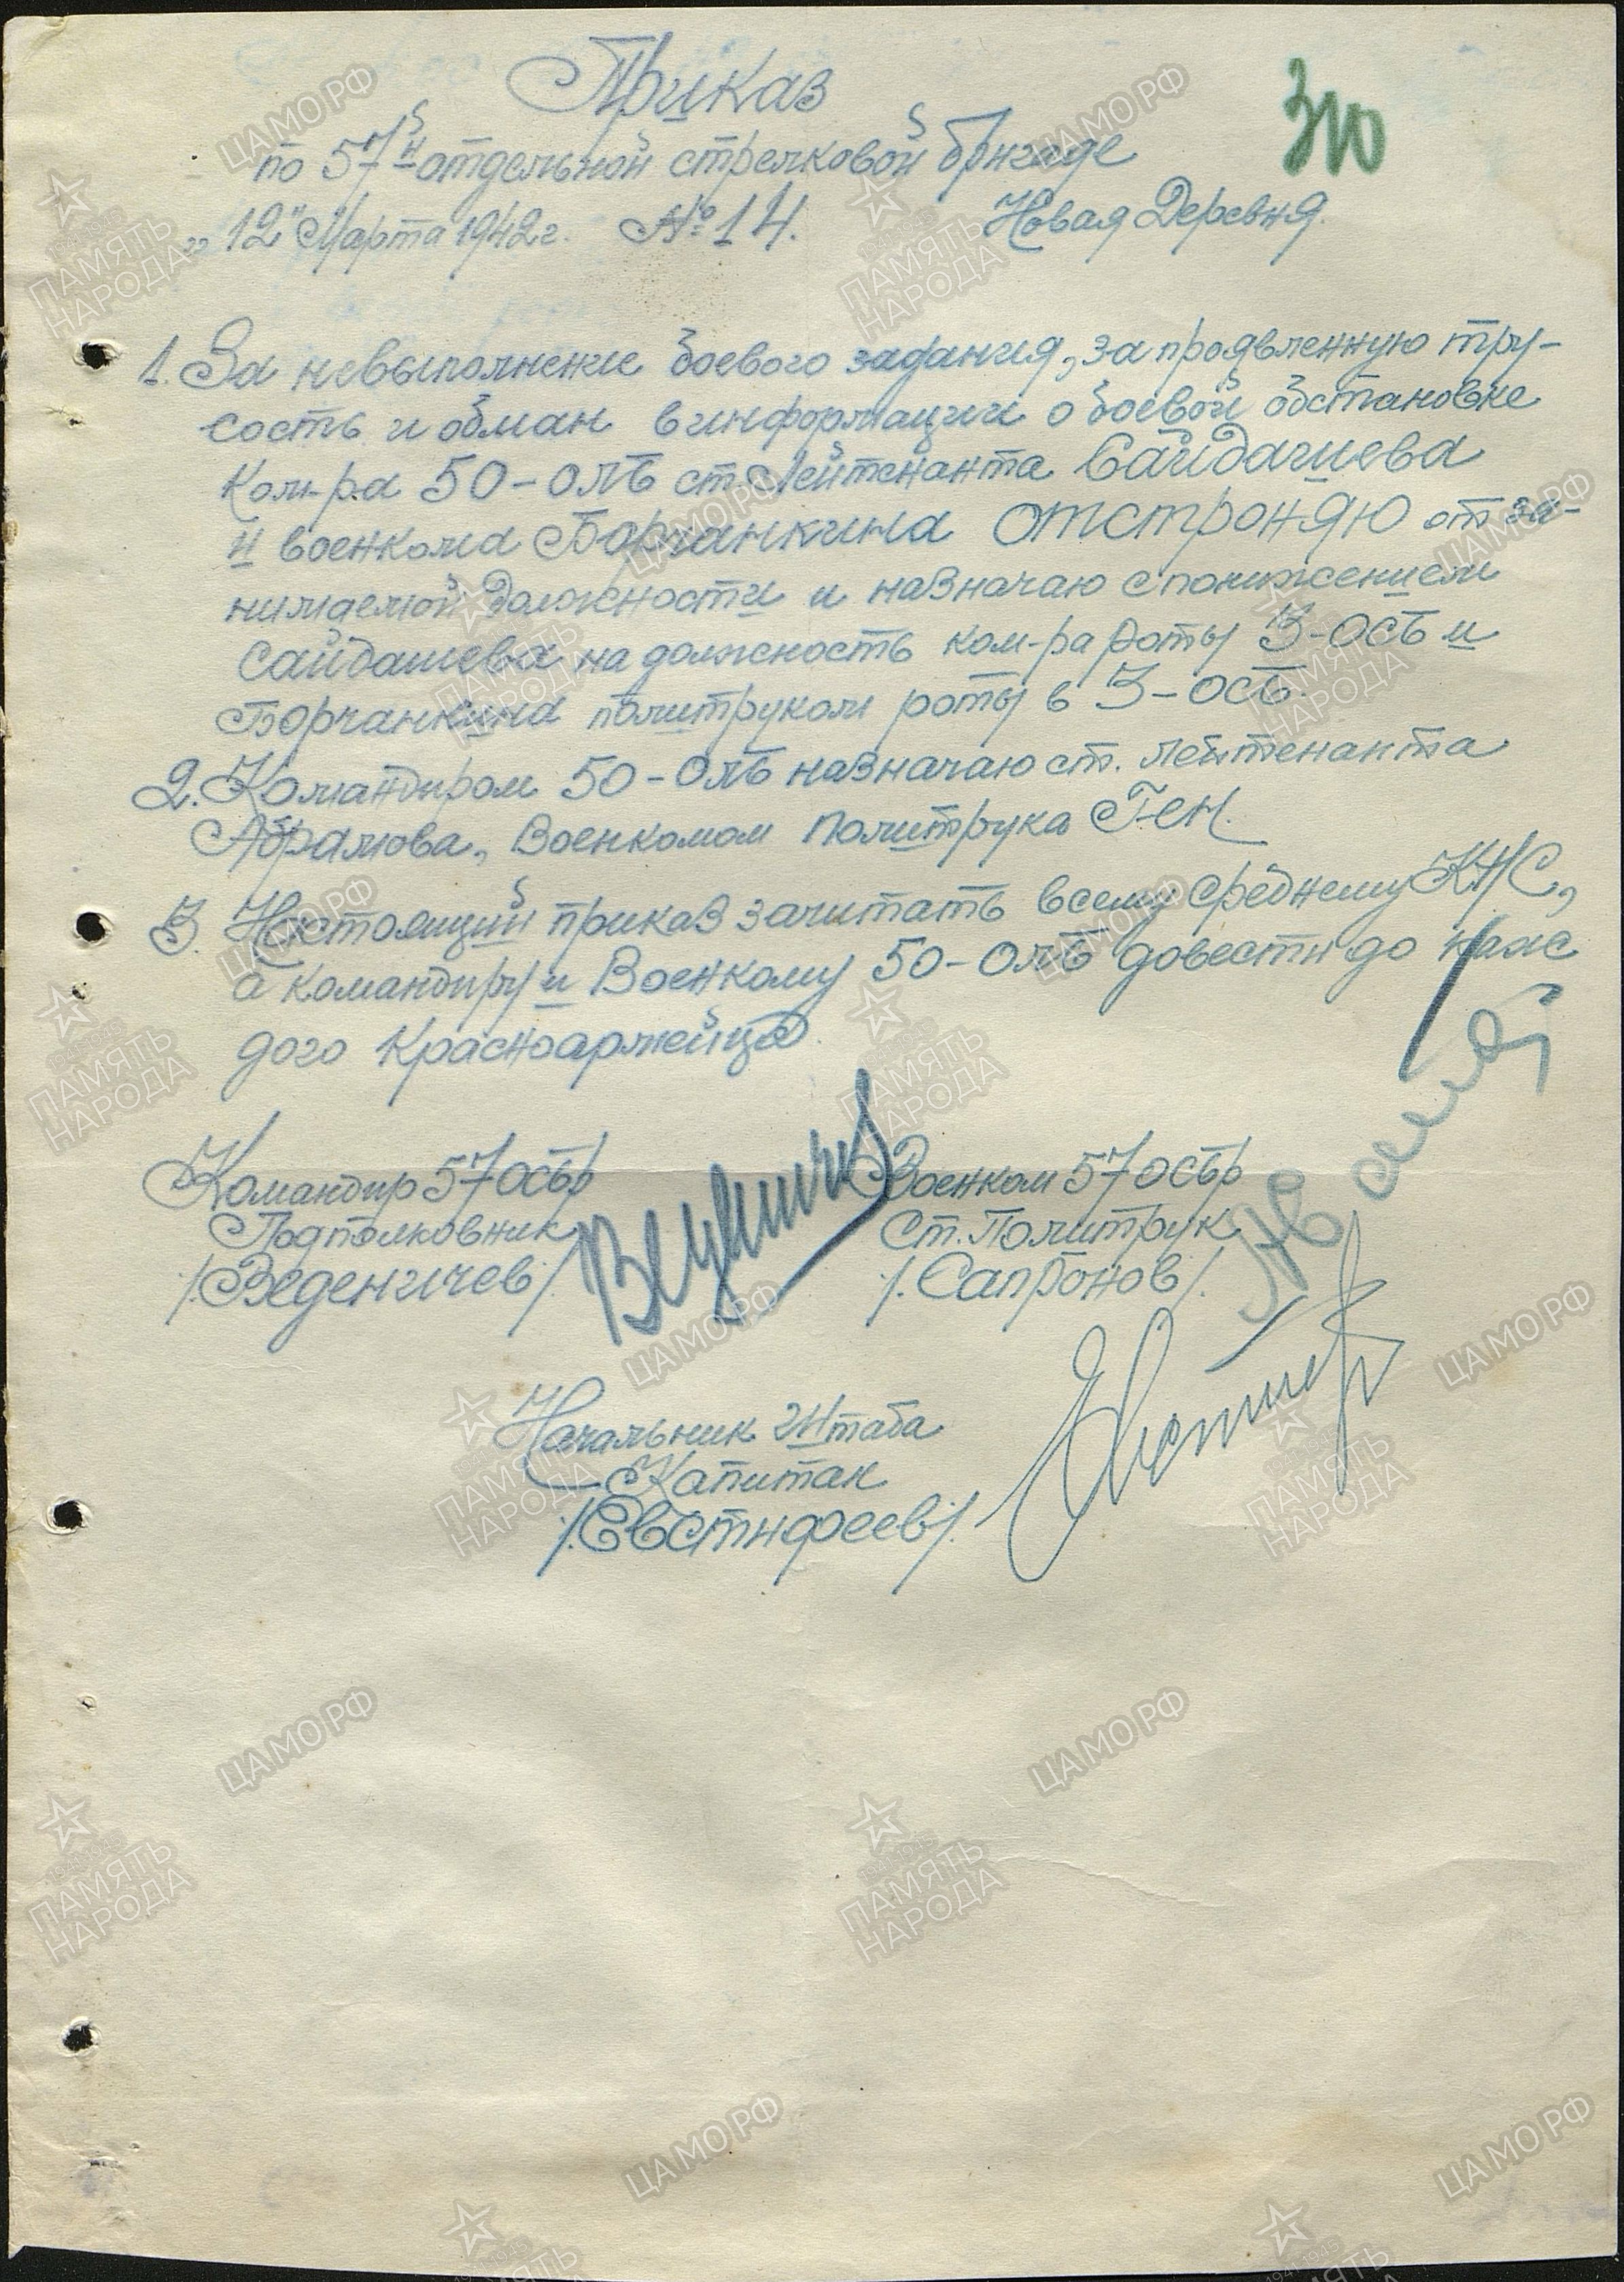 310
Приказ
по 57й отдельной стрелковой бригаде
"12" Марта 1942 г. № 14. Новая Деревня.
1. За невыполнение боевого задания, за проявленную тру-
сость и обман в информации о боевой обстановке
ком-ра 50-ОЛБ ст. Лейтенанта Сайдашева
и военкома Борчанкина отстроняю от за-
нимаемой должности и назначаю с понижением
Сайдашева на должность ком-ра роты 3-ОСБ и
Борчанкина политруком роты в 3-ОСБ.
2. Командиром 50-ОЛБ назначаю ст. лейтенанта
Абрамова, Военкомом Политрука Ген.
3. Настоящий приказ зачитать всему среднему КНС,
а командиру и Военкому 50-ОЛБ довести до каж
дого Красноармейца.
Командир 57 ОСБр Военком 57 ОСБр
Подполковник Ст. Политрук
/.Веденичев/. /.Сапронов/.
Начальник Штаба
Капитан
/.Евстифеев/.
ЦАМО РФ
ПАМЯТЬ НАРОДА